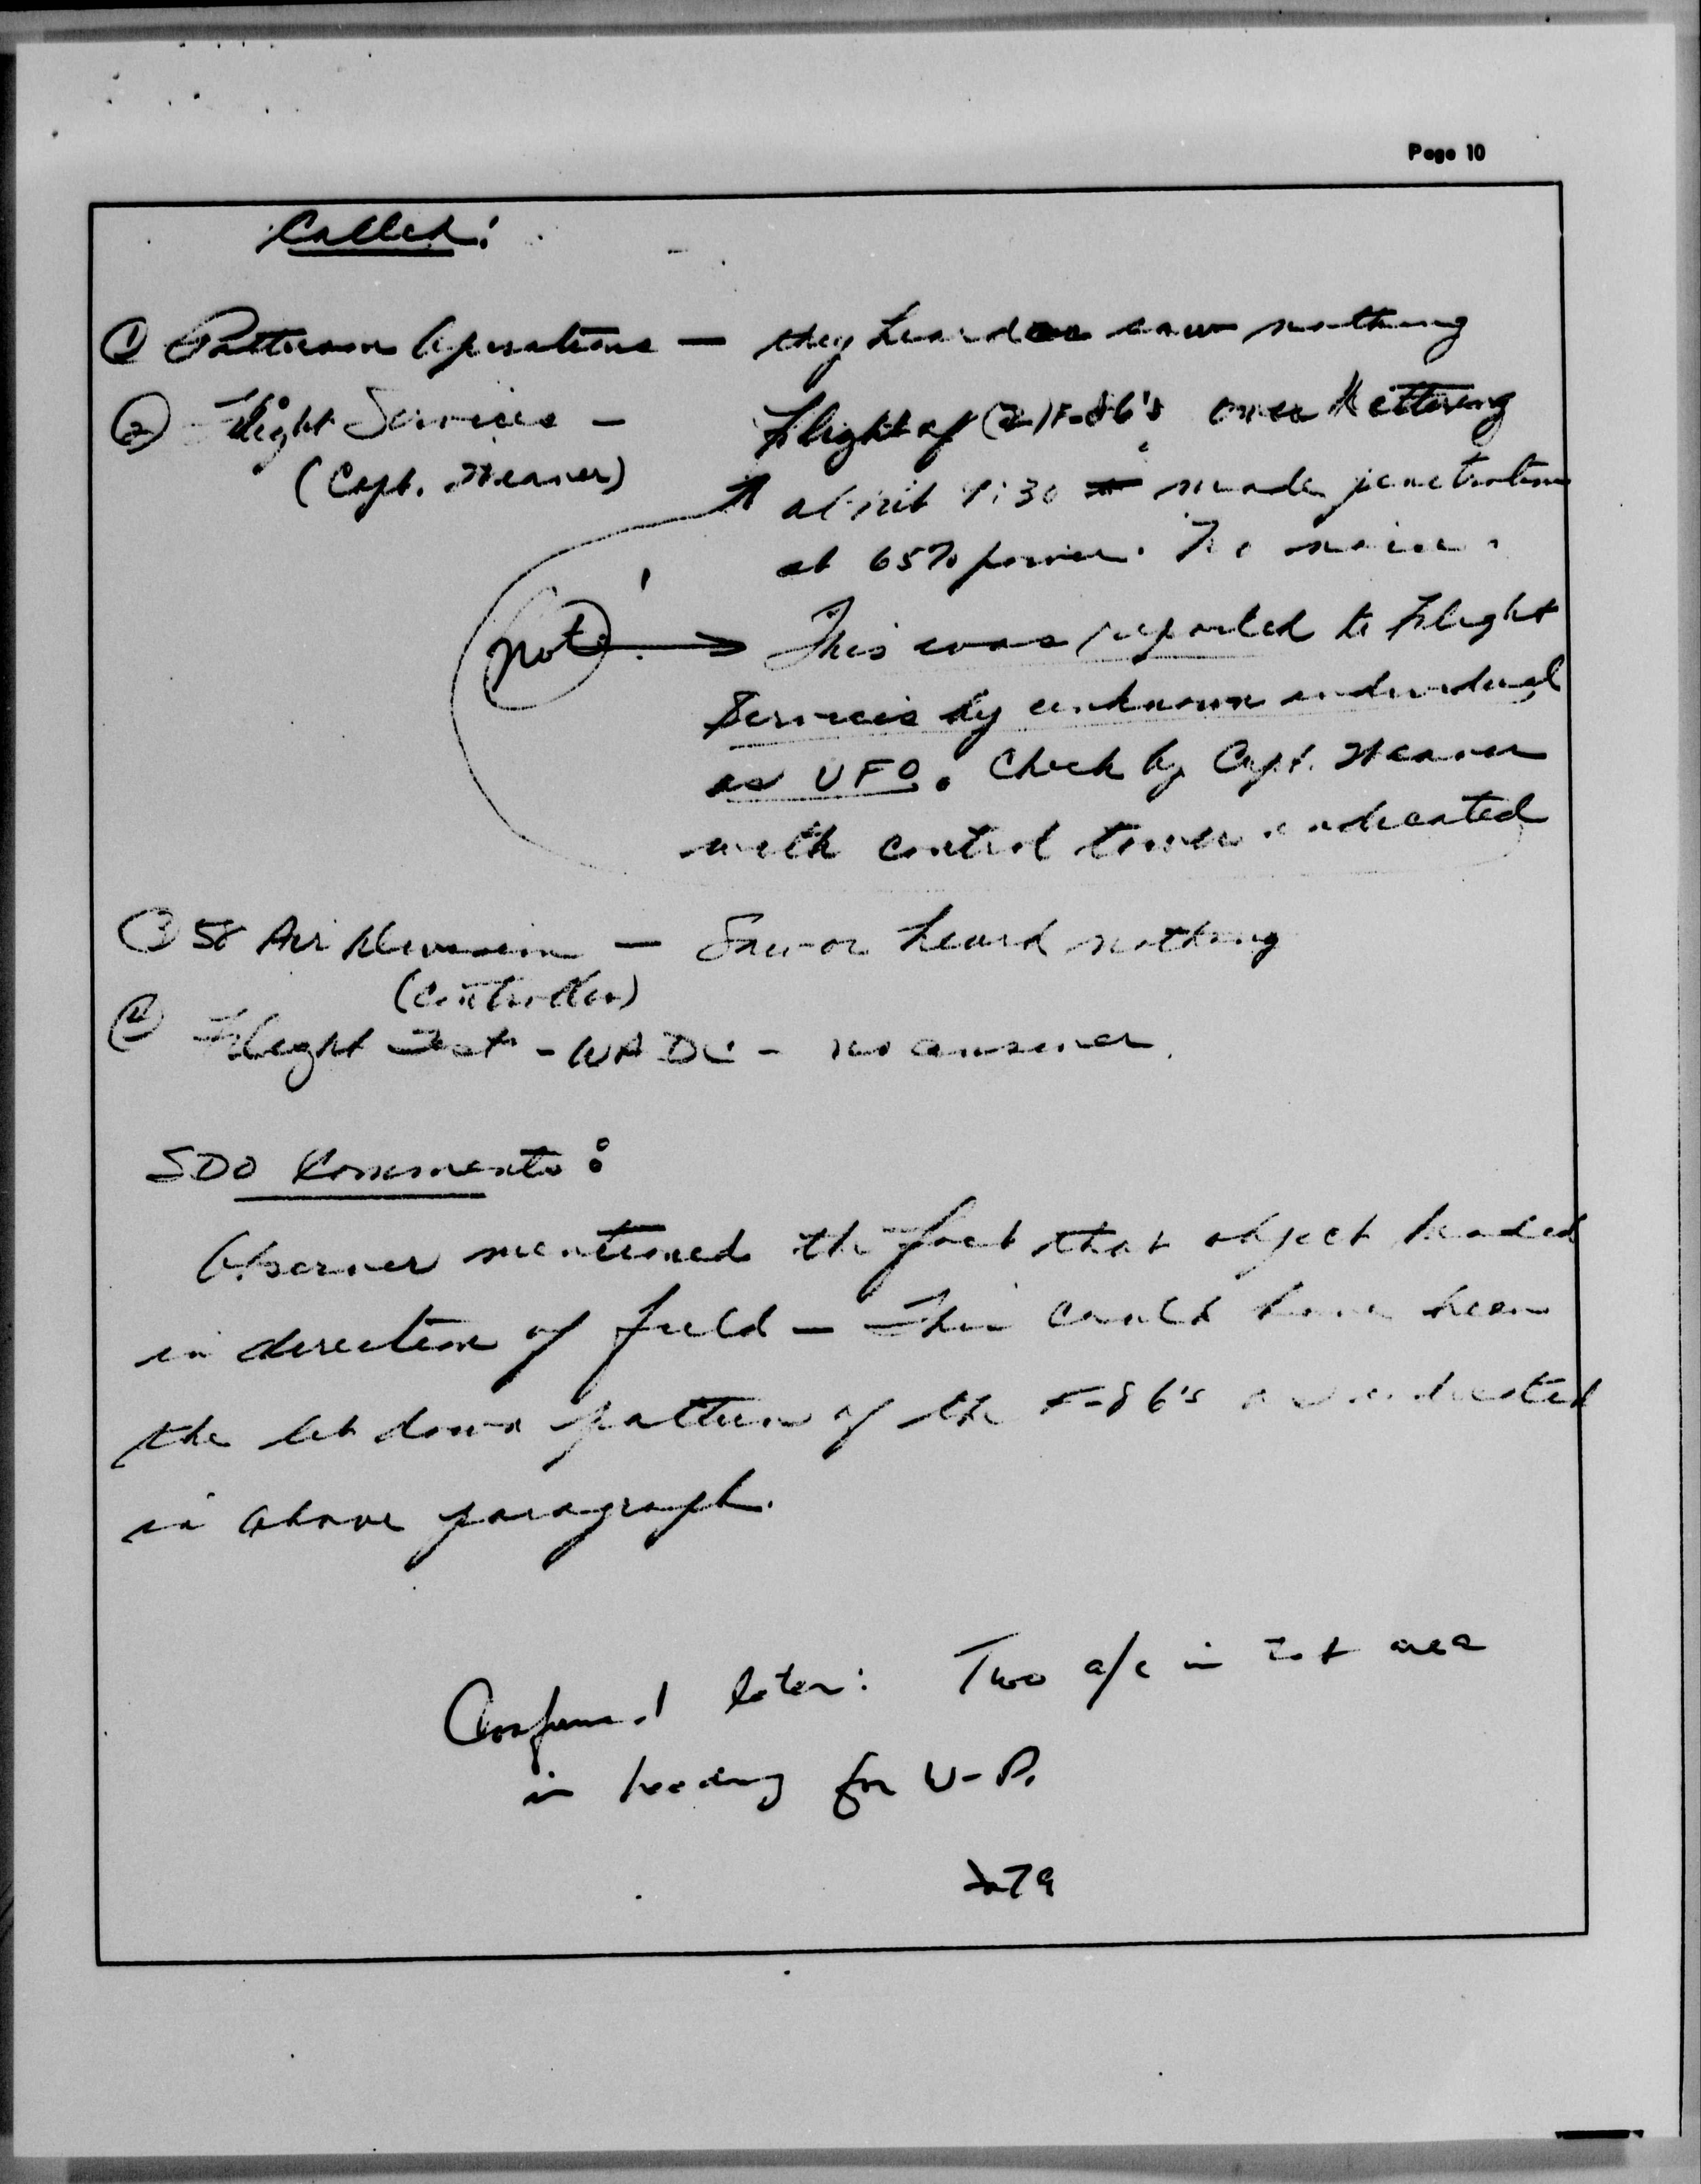 Page 10
Called:
① Patterson Operations — they heard or saw nothing
② Flight Services — Flight of (2) F-86's over Kettering
(Capt. Weaver) about 9:30 made penetration
at 65% power. No noise.
Note: → This was reported to Flight
Services by unknown individual
as UFO. Check by Capt. Weaver
with control tower indicated
③ 58 Air Division — Saw or heard nothing
(Controller)
④ Flight Test - WADC - no answer.
SDO Comments:
Observer mentioned the fact that object headed
in direction of field — This could have been
the let down pattern of the F-86's as indicated
in above paragraph.
Confirmed later: Two a/c in that area
in heading for W-P.